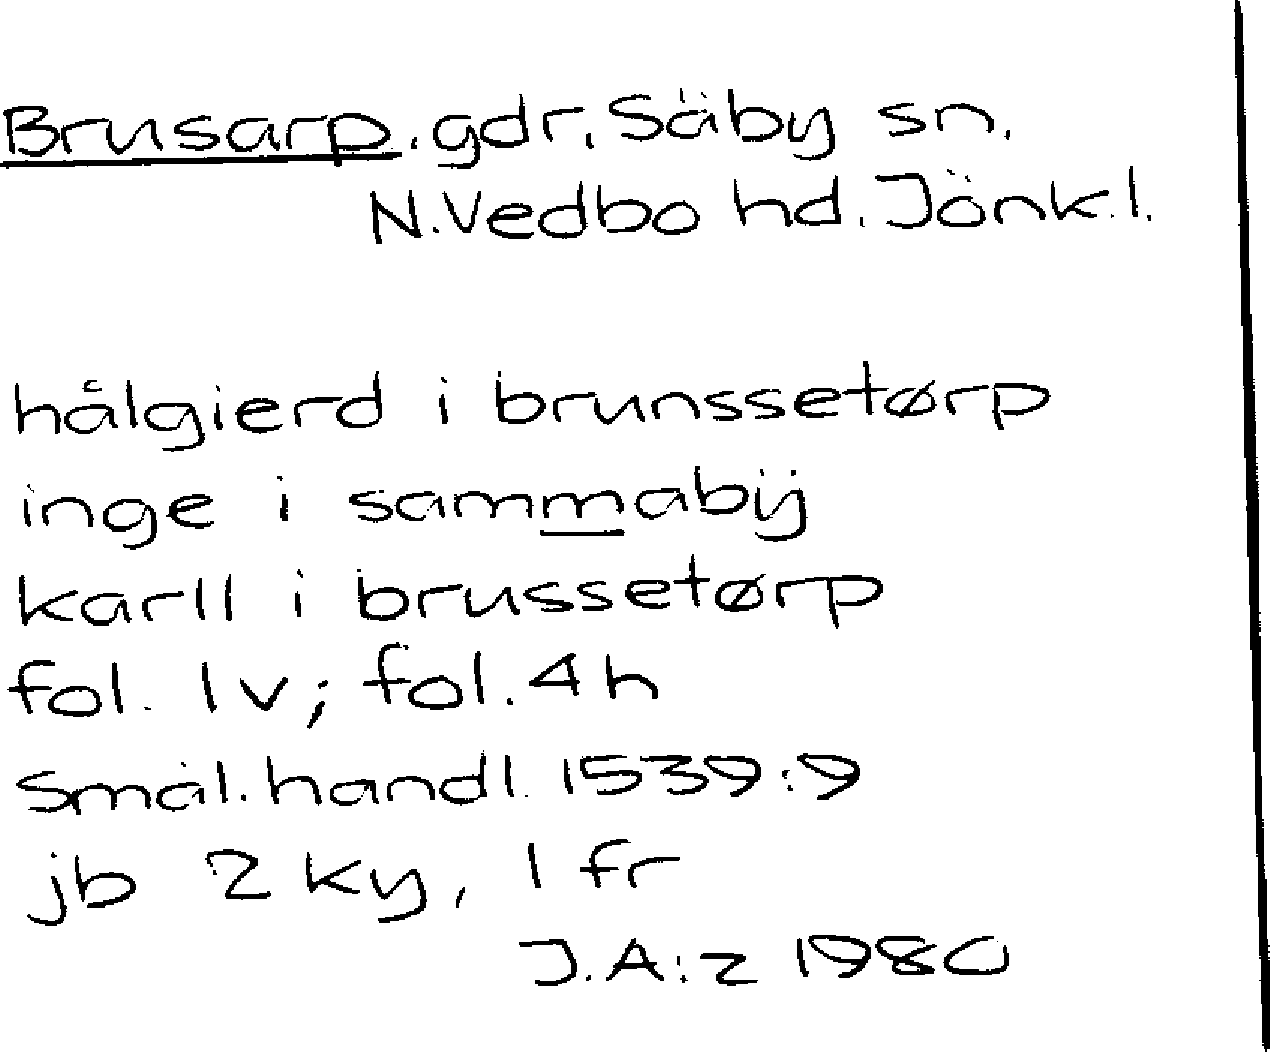 Brusarp, gdr, Säby sn,
N.Vedbo hd. Jönk.l.
hålgierd i brunssetørp
inge i sammabÿ
karll i brussetørp
fol. 1v; fol. 4h
Smål. handl. 1539:9
jb 2 ky, 1 fr
J.A:z 1980